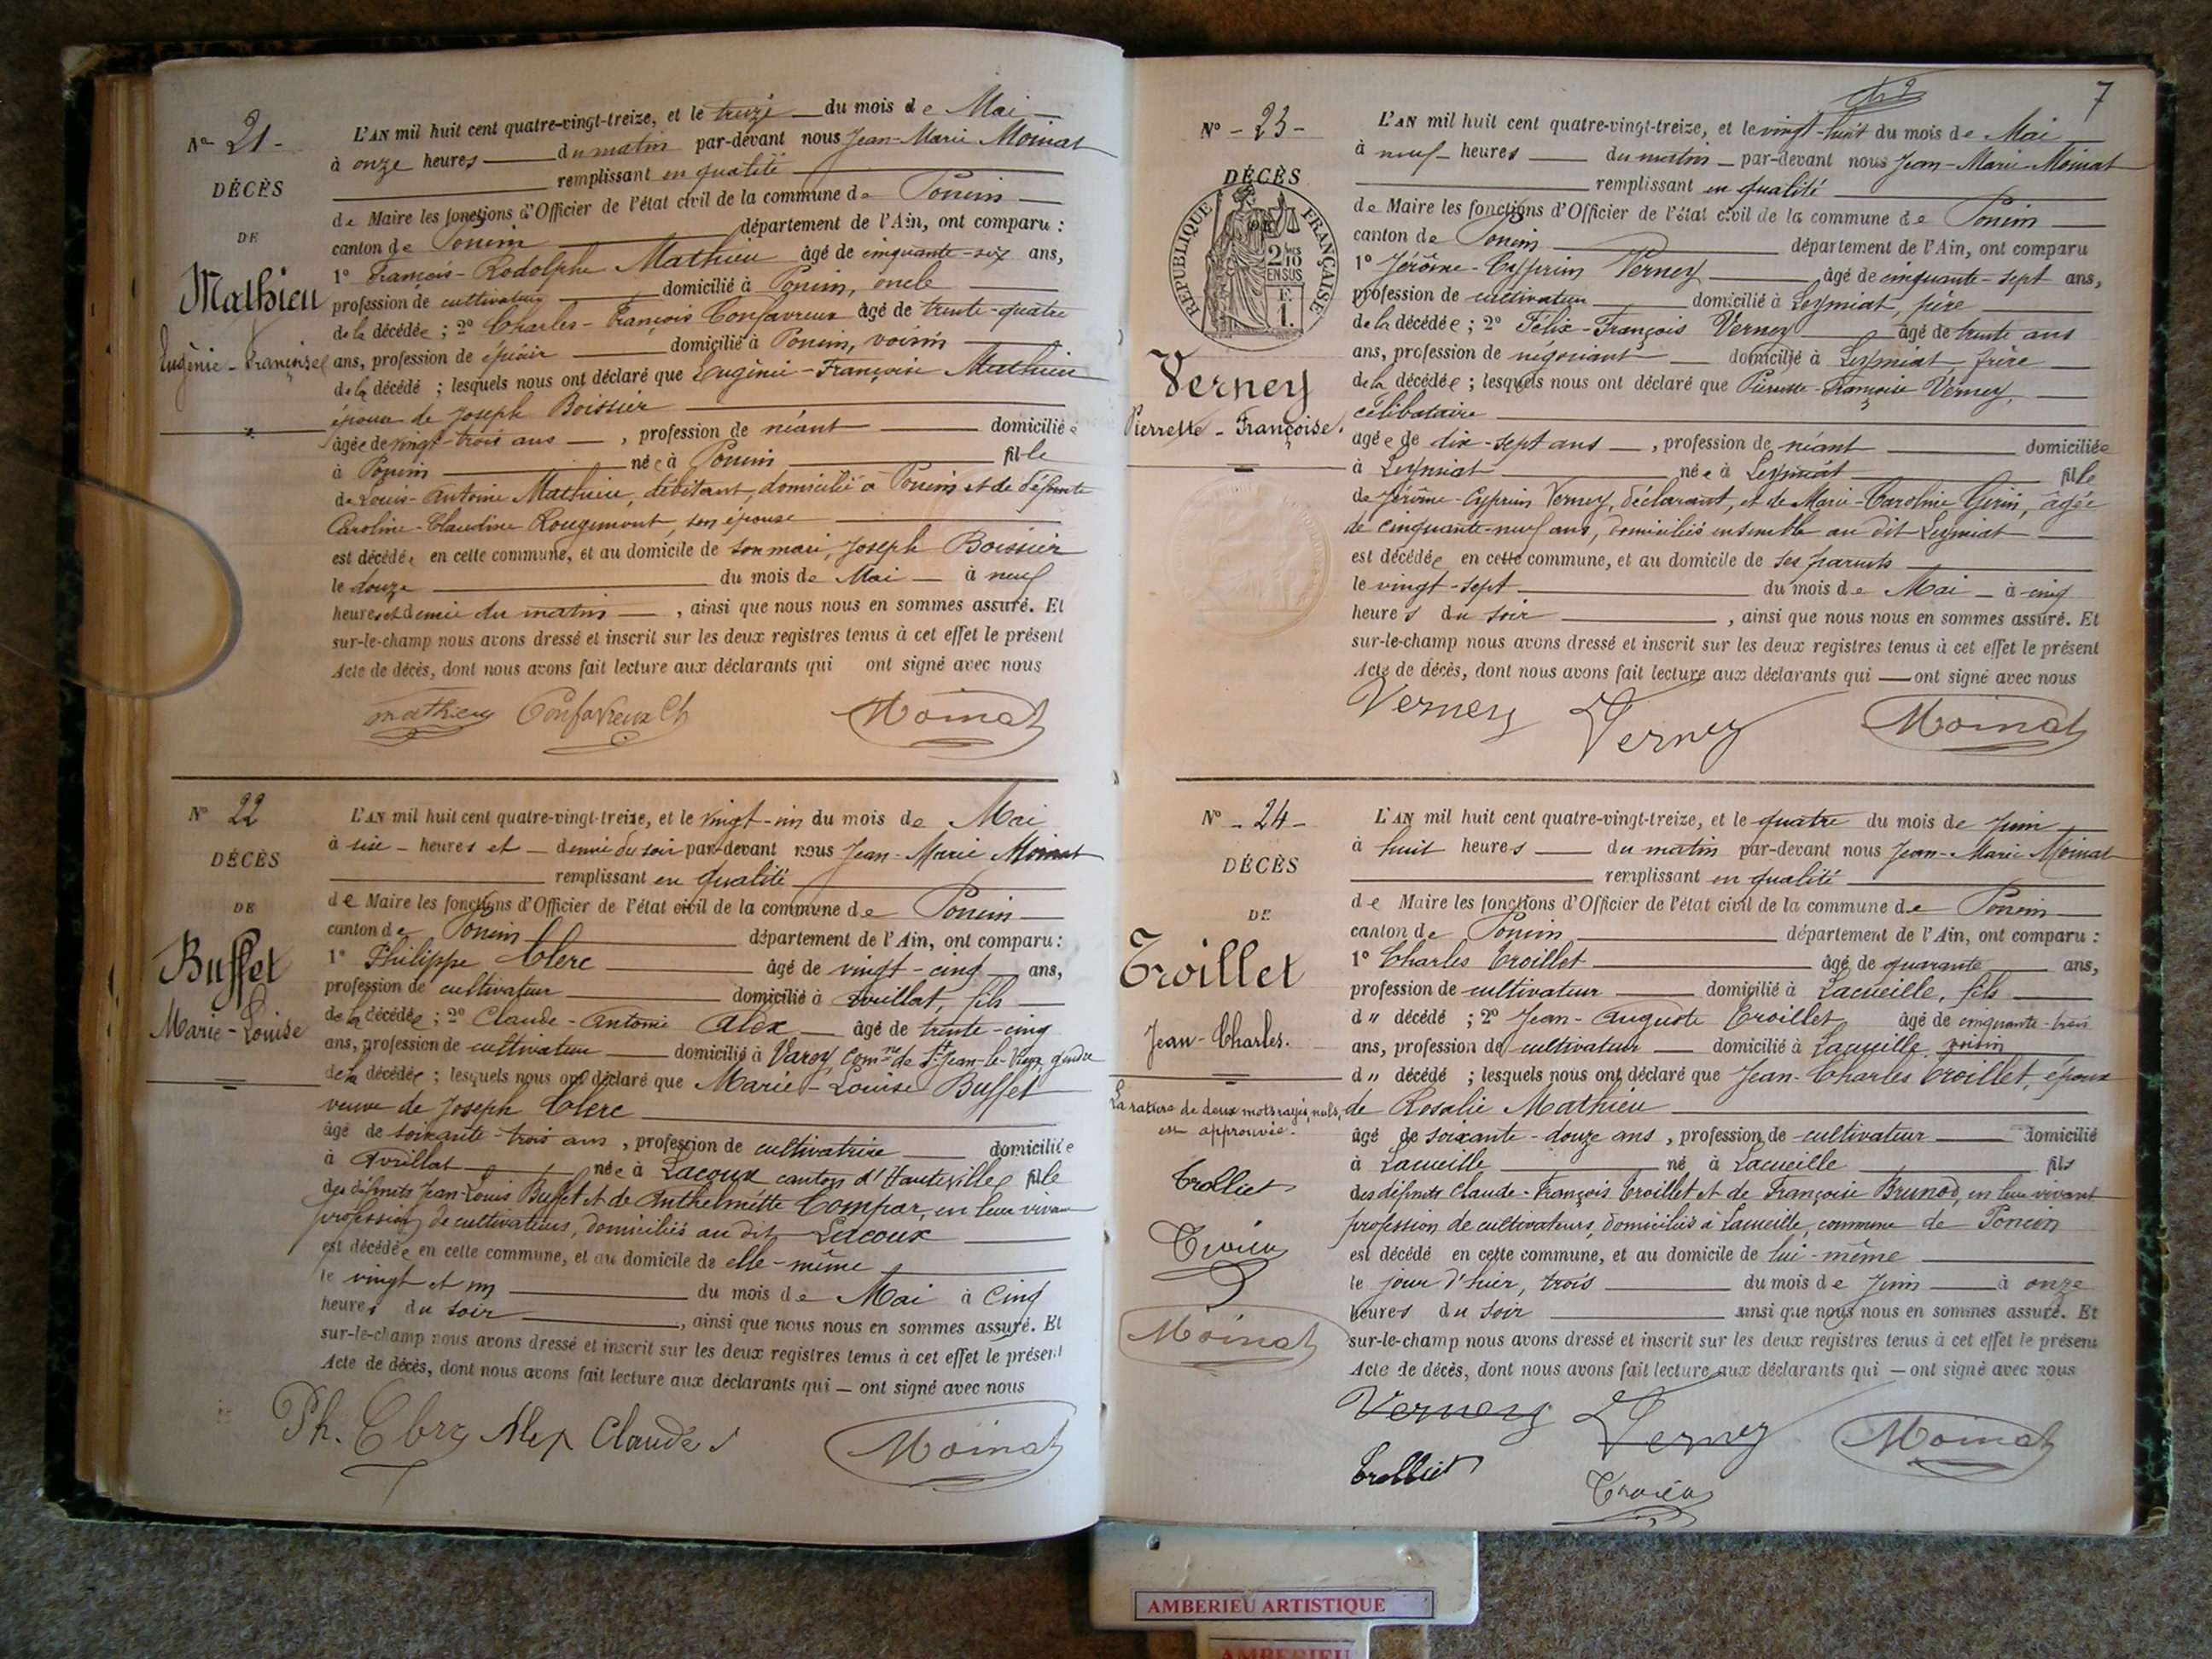 N° 21 -
DÉCÈS
DE
Mathieu
Eugénie - Françoise
L'AN mil huit cent quatre-vingt-treize, et le treize du mois de Mai
à onze heures du matin par-devant nous Jean-Marie Moinat
remplissant en qualité
de Maire les fonctions d'Officier de l'état civil de la commune de Poncin
canton de Poncin département de l'Ain, ont comparu :
1° François-Rodolphe Mathieu âgé de cinquante-six ans,
profession de cultivateur domicilié à Poncin, oncle
de la décédée ; 2° Charles-François Confavreux âgé de trente-quatre
ans, profession de épicier domicilié à Poncin, voisin
de la décédé ; lesquels nous ont déclaré que Eugénie-Françoise Mathieu
épouse de Joseph Boissier
âgée de vingt-trois ans, profession de néant domicilié
à Poncin née à Poncin fille
de Louis-Antoine Mathieu, débitant, domicilié à Poncin et de défunte
Caroline-Claudine Rougemont, son épouse
est décédée en cette commune, et au domicile de son mari, Joseph Boissier
le douze du mois de Mai à neuf
heures et demie du matin, ainsi que nous nous en sommes assuré. Et
sur-le-champ nous avons dressé et inscrit sur les deux registres tenus à cet effet le présent
Acte de décès, dont nous avons fait lecture aux déclarants qui ont signé avec nous
mathieu Confavreux Ch Moinat
N° 22
DÉCÈS
DE
Buffet
Marie-Louise
L'AN mil huit cent quatre-vingt-treize, et le vingt-un du mois de Mai
à six heures et demie du soir par-devant nous Jean-Marie Moinat
remplissant en qualité
de Maire les fonctions d'Officier de l'état civil de la commune de Poncin
canton de Poncin département de l'Ain, ont comparu :
1° Philippe Clerc âgé de vingt-cinq ans,
profession de cultivateur domicilié à Avrillat, fils
de la décédée ; 2° Claude-Antoine Alex âgé de trente-cinq
ans, profession de cultivateur domicilié à Varey, comne de St Jean-le-Vieux, gendre
de la décédée ; lesquels nous ont déclaré que Marie-Louise Buffet
veuve de Joseph Clerc
âgé de soixante-trois ans, profession de cultivatrice domiciliée
à Avrillat née à Lacoux canton d'Hauteville fille
des défunts Jean-Louis Buffet et de Anthelmette Compar, en leur vivant
profession de cultivateurs, domiciliés au dit Lacoux
est décédée en cette commune, et au domicile de elle-même
le vingt et un du mois de Mai à cinq
heures du soir, ainsi que nous nous en sommes assuré. Et
sur-le-champ nous avons dressé et inscrit sur les deux registres tenus à cet effet le présent
Acte de décès, dont nous avons fait lecture aux déclarants qui — ont signé avec nous
Ph. Clerc Alex Claude Moinat
7
N° - 23 -
DÉCÈS
DE
RÉPUBLIQUE FRANÇAISE
2/10
EN SUS
F.
1.
Verney
Pierrette-Françoise.
L'AN mil huit cent quatre-vingt-treize, et le vingt-huit du mois de Mai
à neuf heures du matin par-devant nous Jean-Marie Moinat
remplissant en qualité
de Maire les fonctions d'Officier de l'état civil de la commune de Poncin
canton de Poncin département de l'Ain, ont comparu
1° Jérôme-Cyprien Verney âgé de cinquante-sept ans,
profession de cultivateur domicilié à Leymiat, père
de la décédée ; 2° Félix-François Verney âgé de trente ans
ans, profession de négociant domicilié à Leymiat, frère
de la décédée ; lesquels nous ont déclaré que Pierrette-Françoise Verney,
célibataire
agée de dix-sept ans, profession de néant domiciliée
à Leymiat née à Leymiat fille
de Jérôme-Cyprien Verney, déclarant, et de Marie-Caroline Girin, âgée
de cinquante-neuf ans, domiciliés ensemble au dit Leymiat
est décédée en cette commune, et au domicile de ses parents
le vingt-sept du mois de Mai à cinq
heures du soir, ainsi que nous nous en sommes assuré. Et
sur-le-champ nous avons dressé et inscrit sur les deux registres tenus à cet effet le présent
Acte de décès, dont nous avons fait lecture aux déclarants qui — ont signé avec nous
Verney Verney Moinat
N° - 24 -
DÉCÈS
DE
Troillet
Jean-Charles.
La rature de deux mots rayés nuls,
est approuvée.
Trolliet
Moinat
L'AN mil huit cent quatre-vingt-treize, et le quatre du mois de Juin
à huit heures du matin par-devant nous Jean-Marie Moinat
remplissant en qualité
de Maire les fonctions d'Officier de l'état civil de la commune de Poncin
canton de Poncin département de l'Ain, ont comparu :
1° Charles Troillet âgé de quarante ans,
profession de cultivateur domicilié à Lacueille, fils
du décédé ; 2° Jean-Auguste Troillet âgé de cinquante-trois
ans, profession de cultivateur domicilié à Lacueille, voisin
du décédé ; lesquels nous ont déclaré que Jean-Charles Troillet, époux
de Rosalie Mathieu
âgé de soixante-douze ans, profession de cultivateur domicilié
à Lacueille né à Lacueille fils
des défunts Claude-François Troillet et de Françoise Brunod, en leur vivant
profession de cultivateurs, domiciliés à Lacueille, commune de Poncin
est décédé en cette commune, et au domicile de lui-même
le jour d'hier, trois du mois de Juin à onze
heures du soir ainsi que nous nous en sommes assuré. Et
sur-le-champ nous avons dressé et inscrit sur les deux registres tenus à cet effet le présent
Acte de décès, dont nous avons fait lecture aux déclarants qui — ont signé avec nous
Verney Verney Moinat
Trolliet
AMBERIEU ARTISTIQUE
AMBERIEU